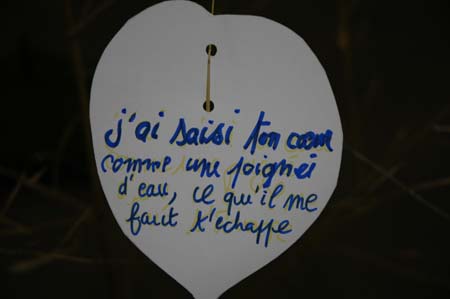 j'ai saisi ton cœur
comme une poignée
d'eau, ce qu'il me
faut t'échappe